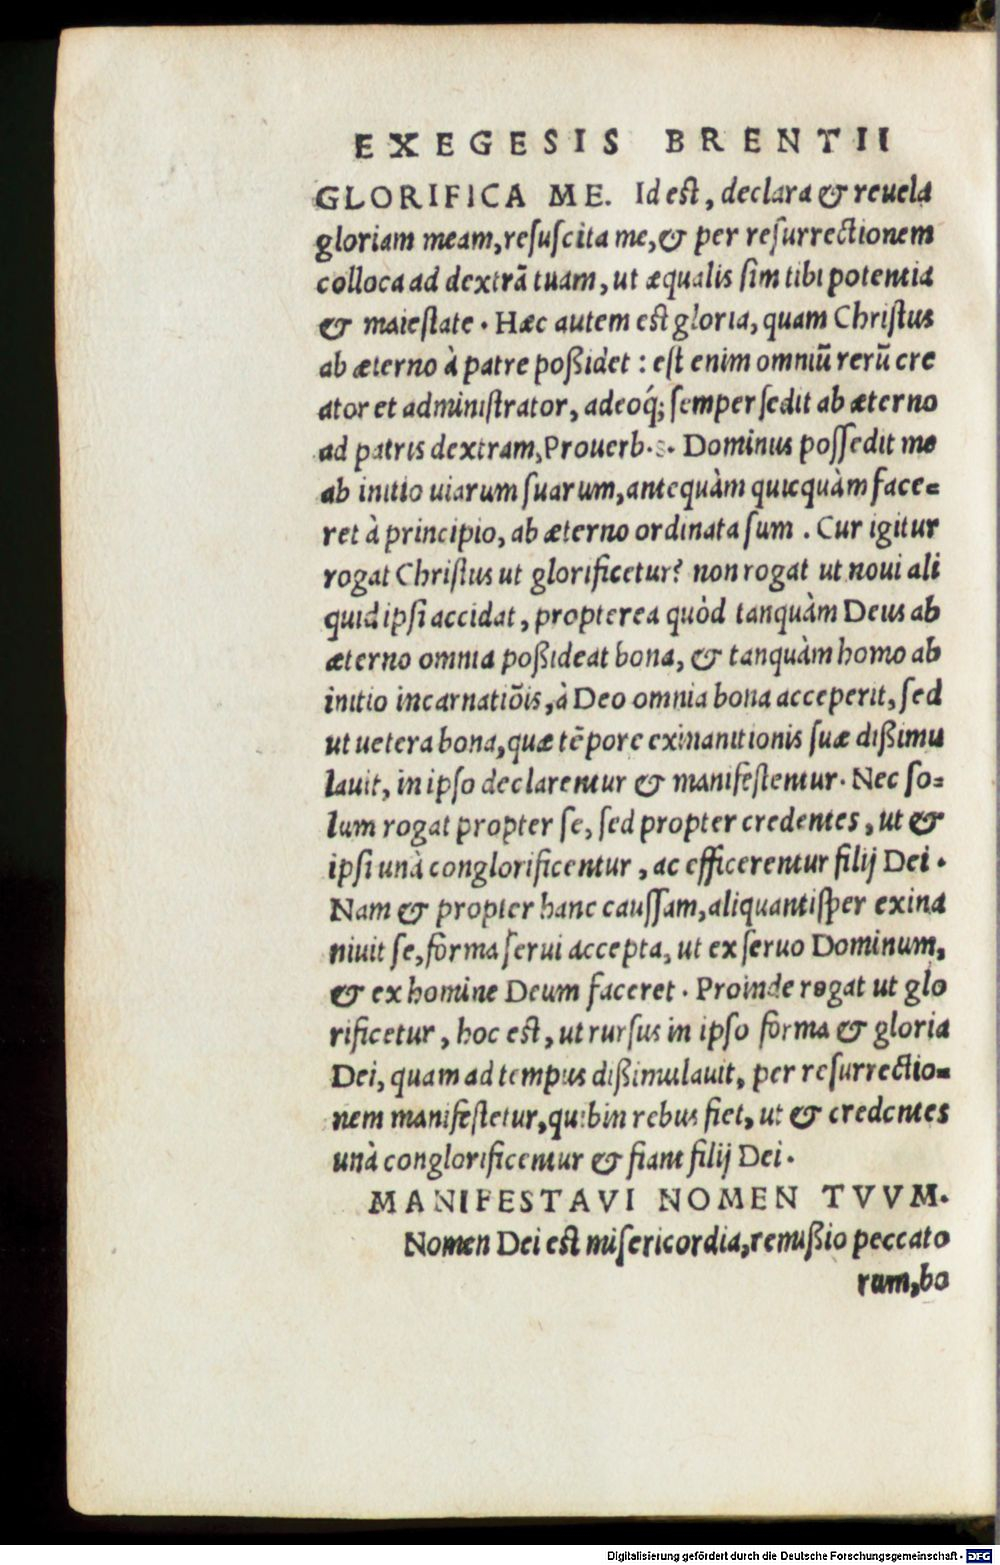 EXEGESIS BRENTII
GLORIFICA ME. Id est, declara & reuela
gloriam meam, resuscita me, & per resurrectionem
colloca ad dextrã tuam, ut æqualis sim tibi potentia
& maiestate. Hæc autem est gloria, quam Christus
ab æterno à patre poßidet: est enim omniũ rerũ cre
ator et administrator, adeoq́; semper sedit ab æterno
ad patris dextram, Prouerb. Dominus possedit me
ab initio uiarum suarum, antequàm quicquàm face=
ret à principio, ab æterno ordinata sum. Cur igitur
rogat Christus ut glorificetur? non rogat ut noui ali
quid ipsi accidat, propterea quòd tanquàm Deus ab
æterno omnia poßideat bona, & tanquàm homo ab
initio incarnatiõis, à Deo omnia bona acceperit, sed
ut uetera bona, quæ tẽpore exinanitionis suæ dißimu
lauit, in ipso declarentur & manifestentur. Nec so=
lum rogat propter se, sed propter credentes, ut &
ipsi unà conglorificentur, ac efficerentur filij Dei.
Nam & propter hanc caussam, aliquantisper exina
niuit se, forma serui accepta, ut ex seruo Dominum,
& ex homine Deum faceret. Proinde rogat ut glo
rificetur, hoc est, ut rursus in ipso forma & gloria
Dei, quam ad tempus dißimulauit, per resurrectio=
nem manifestetur, quibin rebus fiet, ut & credentes
unà conglorificentur & fiant filij Dei.
MANIFESTAVI NOMEN TVVM.
Nomen Dei est misericordia, remißio peccato
rum, bo
Digitalisierung gefördert durch die Deutsche Forschungsgemeinschaft - DFG